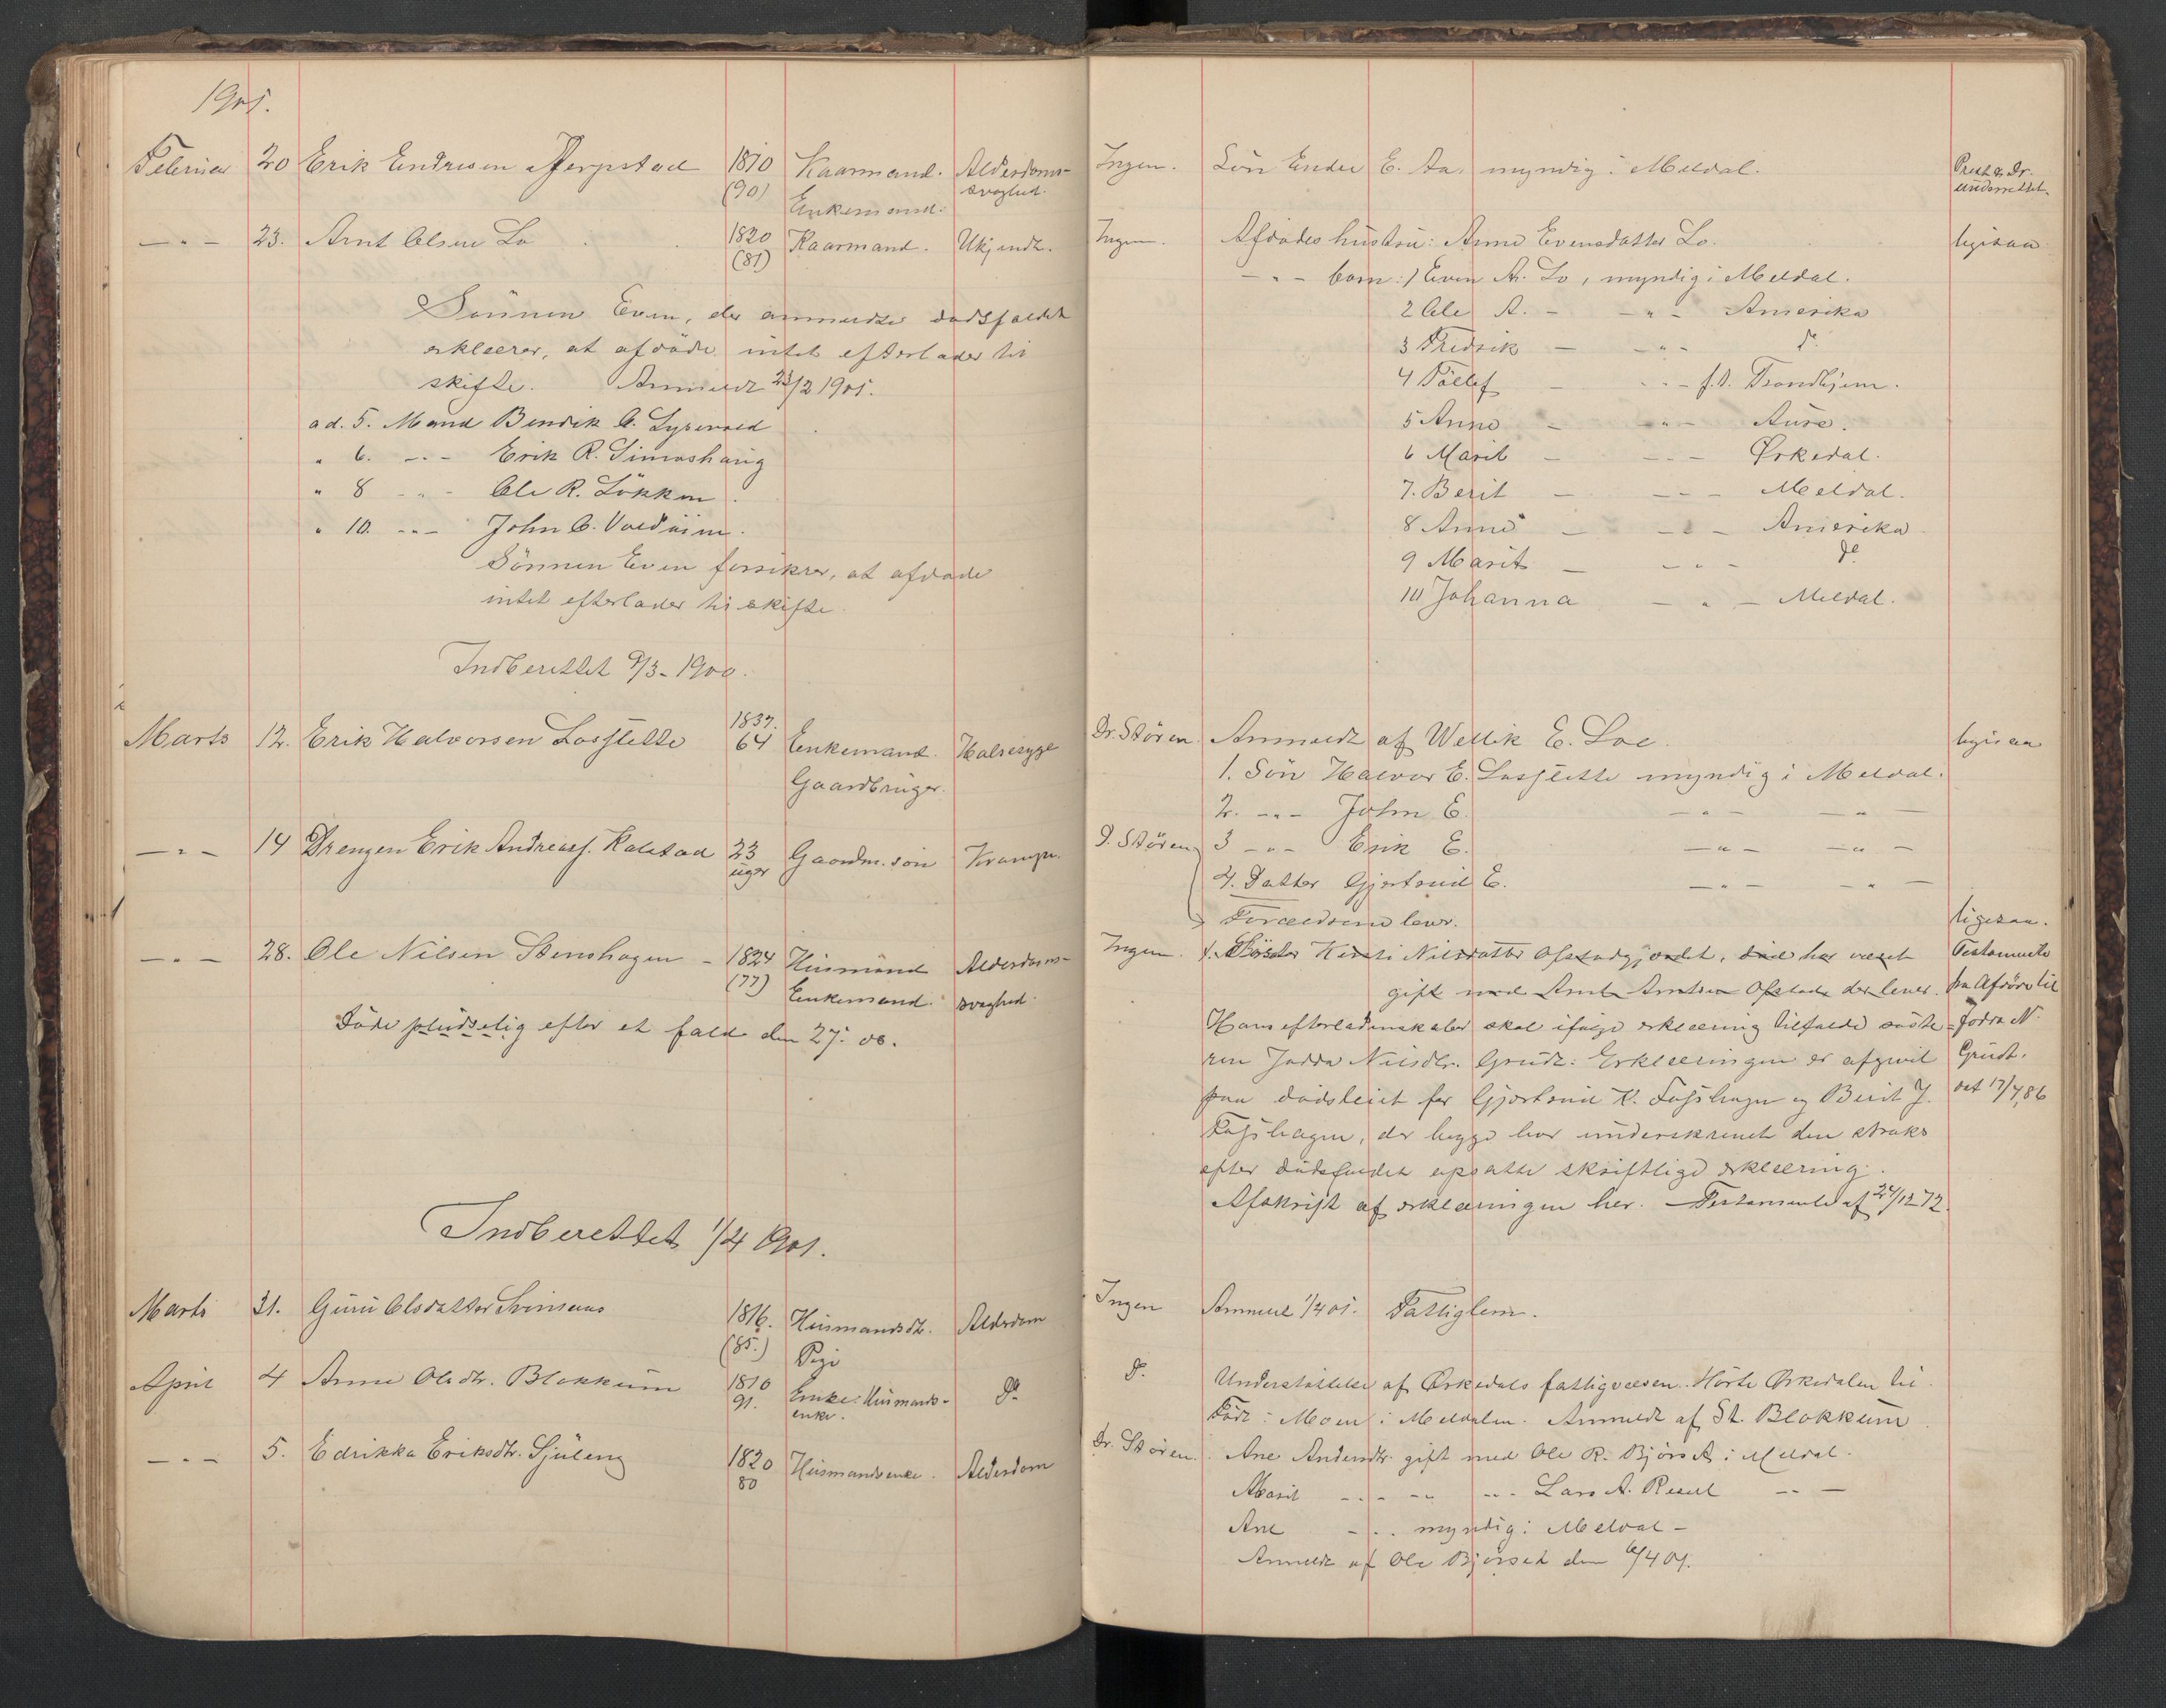 1901.
Februar 20 Erik Endresen 1810 Kaarmand. Alderdoms-
(90) Enkemand. svaghed.
— " — 23. Arnt Olsen Lo 1820 Kaarmand. Ukjendt.
(81)
Sønnen Even, der anmeldte dødsfaldet
erklærer, at afdøde intet efterlader til
skifte. Anmeldt 23/2 1901.
ad. 5. Mand Bendik O.
" 6. — " — Erik R. Simashaug
" 8 — " — Ole R. Løkken
" 10. — " — John O.
Sønnen Even forsikrer, at afdøde
intet efterlader til skifte.
Indberettet 9/3 - 1900.
Marts 12. Erik Halvorsen Losflette 1837. Enkemand. Halssyge
64 Gaardbruger.
— " — 14 Drengen Erik Andreass. Kalstad 23 Gaardm. søn Krampe.
uger
— " — 28. Ole Nilsen Stenshagen - 1824 Husmand Alderdoms-
(77) Enkemand. svaghed.
Døde pludselig efter et fald den 27. ds.
Indberettet 1/4 1901.
Marts 31. Guru Olsdatter 1816. Husmandsdt. Alderdom
(85.) Pige
April 4 Anne Olsdtr. Blokkum 1810 Enke. Husmands- do
91. enke.
— " — 5. Edrikka Eriksdtr. Sjuleng 1820 Husmandsenke. Alderdom
80
Ingen. Søn Ender E. Aa. myndig i Meldal. Prest & Dr.
underrettet.
Ingen. Afdødes hustru: Anne Evensdatter Lo. ligesaa
— " — børn: 1 Even A. Lo, myndig i Meldal.
2 Ole A. — — " — Amerika
3 Fredrik — — " — do
4 Tollef — — " — f. t. Trondhjem.
5 Anne — — " — Aure.
6 Marit — — " — Ørkedal.
7. Berit — — " — Meldal.
8 Anne — — " — Amerika
9 Marit — — " — do
10 Johanna — " — Meldal.
Dr. Støren Anmeldt af E. Loe. ligesaa
1. Søn Halvor E. Losflette myndig i Meldal.
2. — " — John E. — " — — " —
D. Støren 3 — " — Erik E. — " — — " —
4. Datter Gjertrud E. — " — — " —
Forældrene lever. ligesaa.
Ingen. 1. Søster Kirsti Nilsdatter Ofstadgjordet, död har været Testamente
gift med Arnt Arntsen Ofstad, der lever. fra Afdøde til
Hans efterladenskaber skal ifølge erklæring tilfalde søste- Jodra N.
ren Jodra Nilsdtr. Grudt. Erklæringen er afgivet Grudt.
paa dødsleiet for Gjertrud K. Fosshagen og Berit J. dat 17/7 86
Fosshagen, der begge har underskrevet den straks
efter dødsfaldet opsatte skriftlige erklæring.
Afskrift af erklæringen her. — Testamente af 24/12 72.
Ingen Anmeldt 1/4 01. Fattiglem.
do. Understøttelse af Ørkedals fattigvæsen. Hørte Ørkedalen til.
Født i Moen i Meldalen. Anmeldt af St. Blokkum
Dr. Støren. Ane Andersdtr. gift med Ole R. Bjørset i Meldal.
Marit — " — — " — — " — Lars A. — " —
Ane — " — myndig i Meldal —
Anmeldt af Ole Bjørset den 6/4 01.